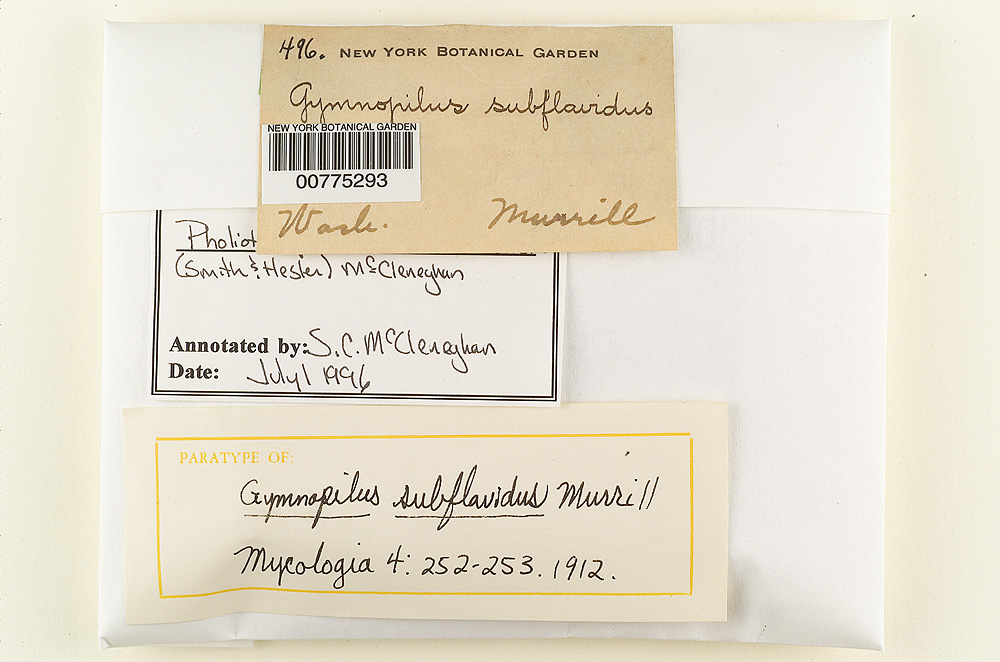 496. NEW YORK BOTANICAL GARDEN
Gymnopilus subflavidus
NEW YORK BOTANICAL GARDEN
00775293
Wash. Murrill
Pholiot
(Smith & Hesler) McCleneghan
Annotated by: S. C. McCleneghan
Date: July 1996
PARATYPE OF:
Gymnopilus subflavidus Murrill
Mycologia 4: 252-253. 1912.